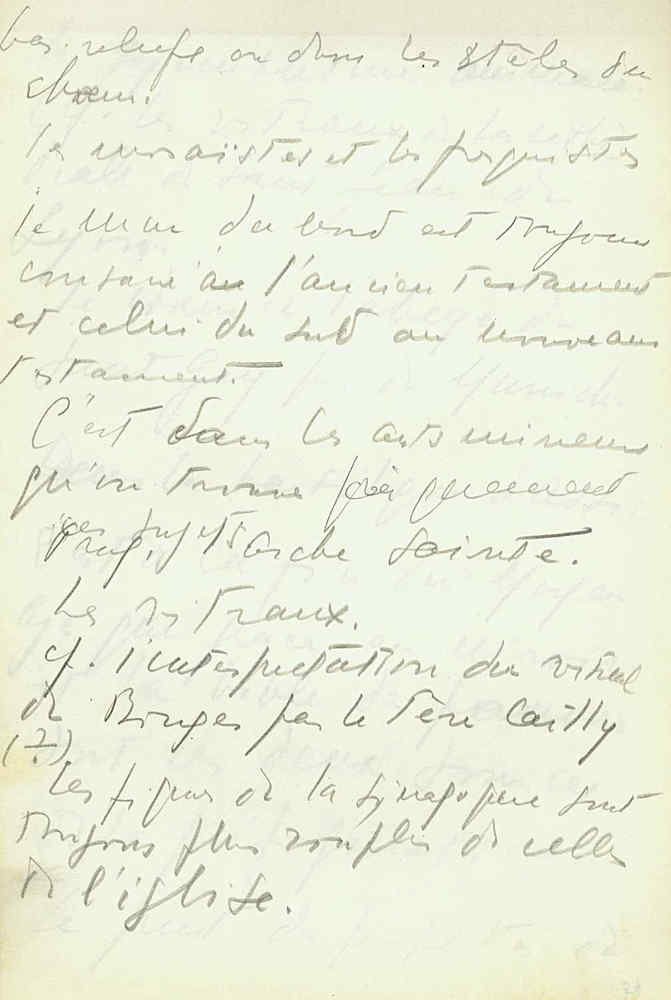 bas. reliefs ou dans les stèles du
chœur.
les mosaïstes et les fresquistes
le mur du nord est toujours
consacré à l'ancien testament
et celui du sud au nouveau
testament.
C'est dans les arts mineurs
qu'on trouve fréquemment
ces sujets arche sainte.
Les vitraux.
cf. l'interprétation du vitrail
de Bourges par le Père Cailly
(?)
Les figures de la synagogue sont
toujours plus souples de celles
de l'église.